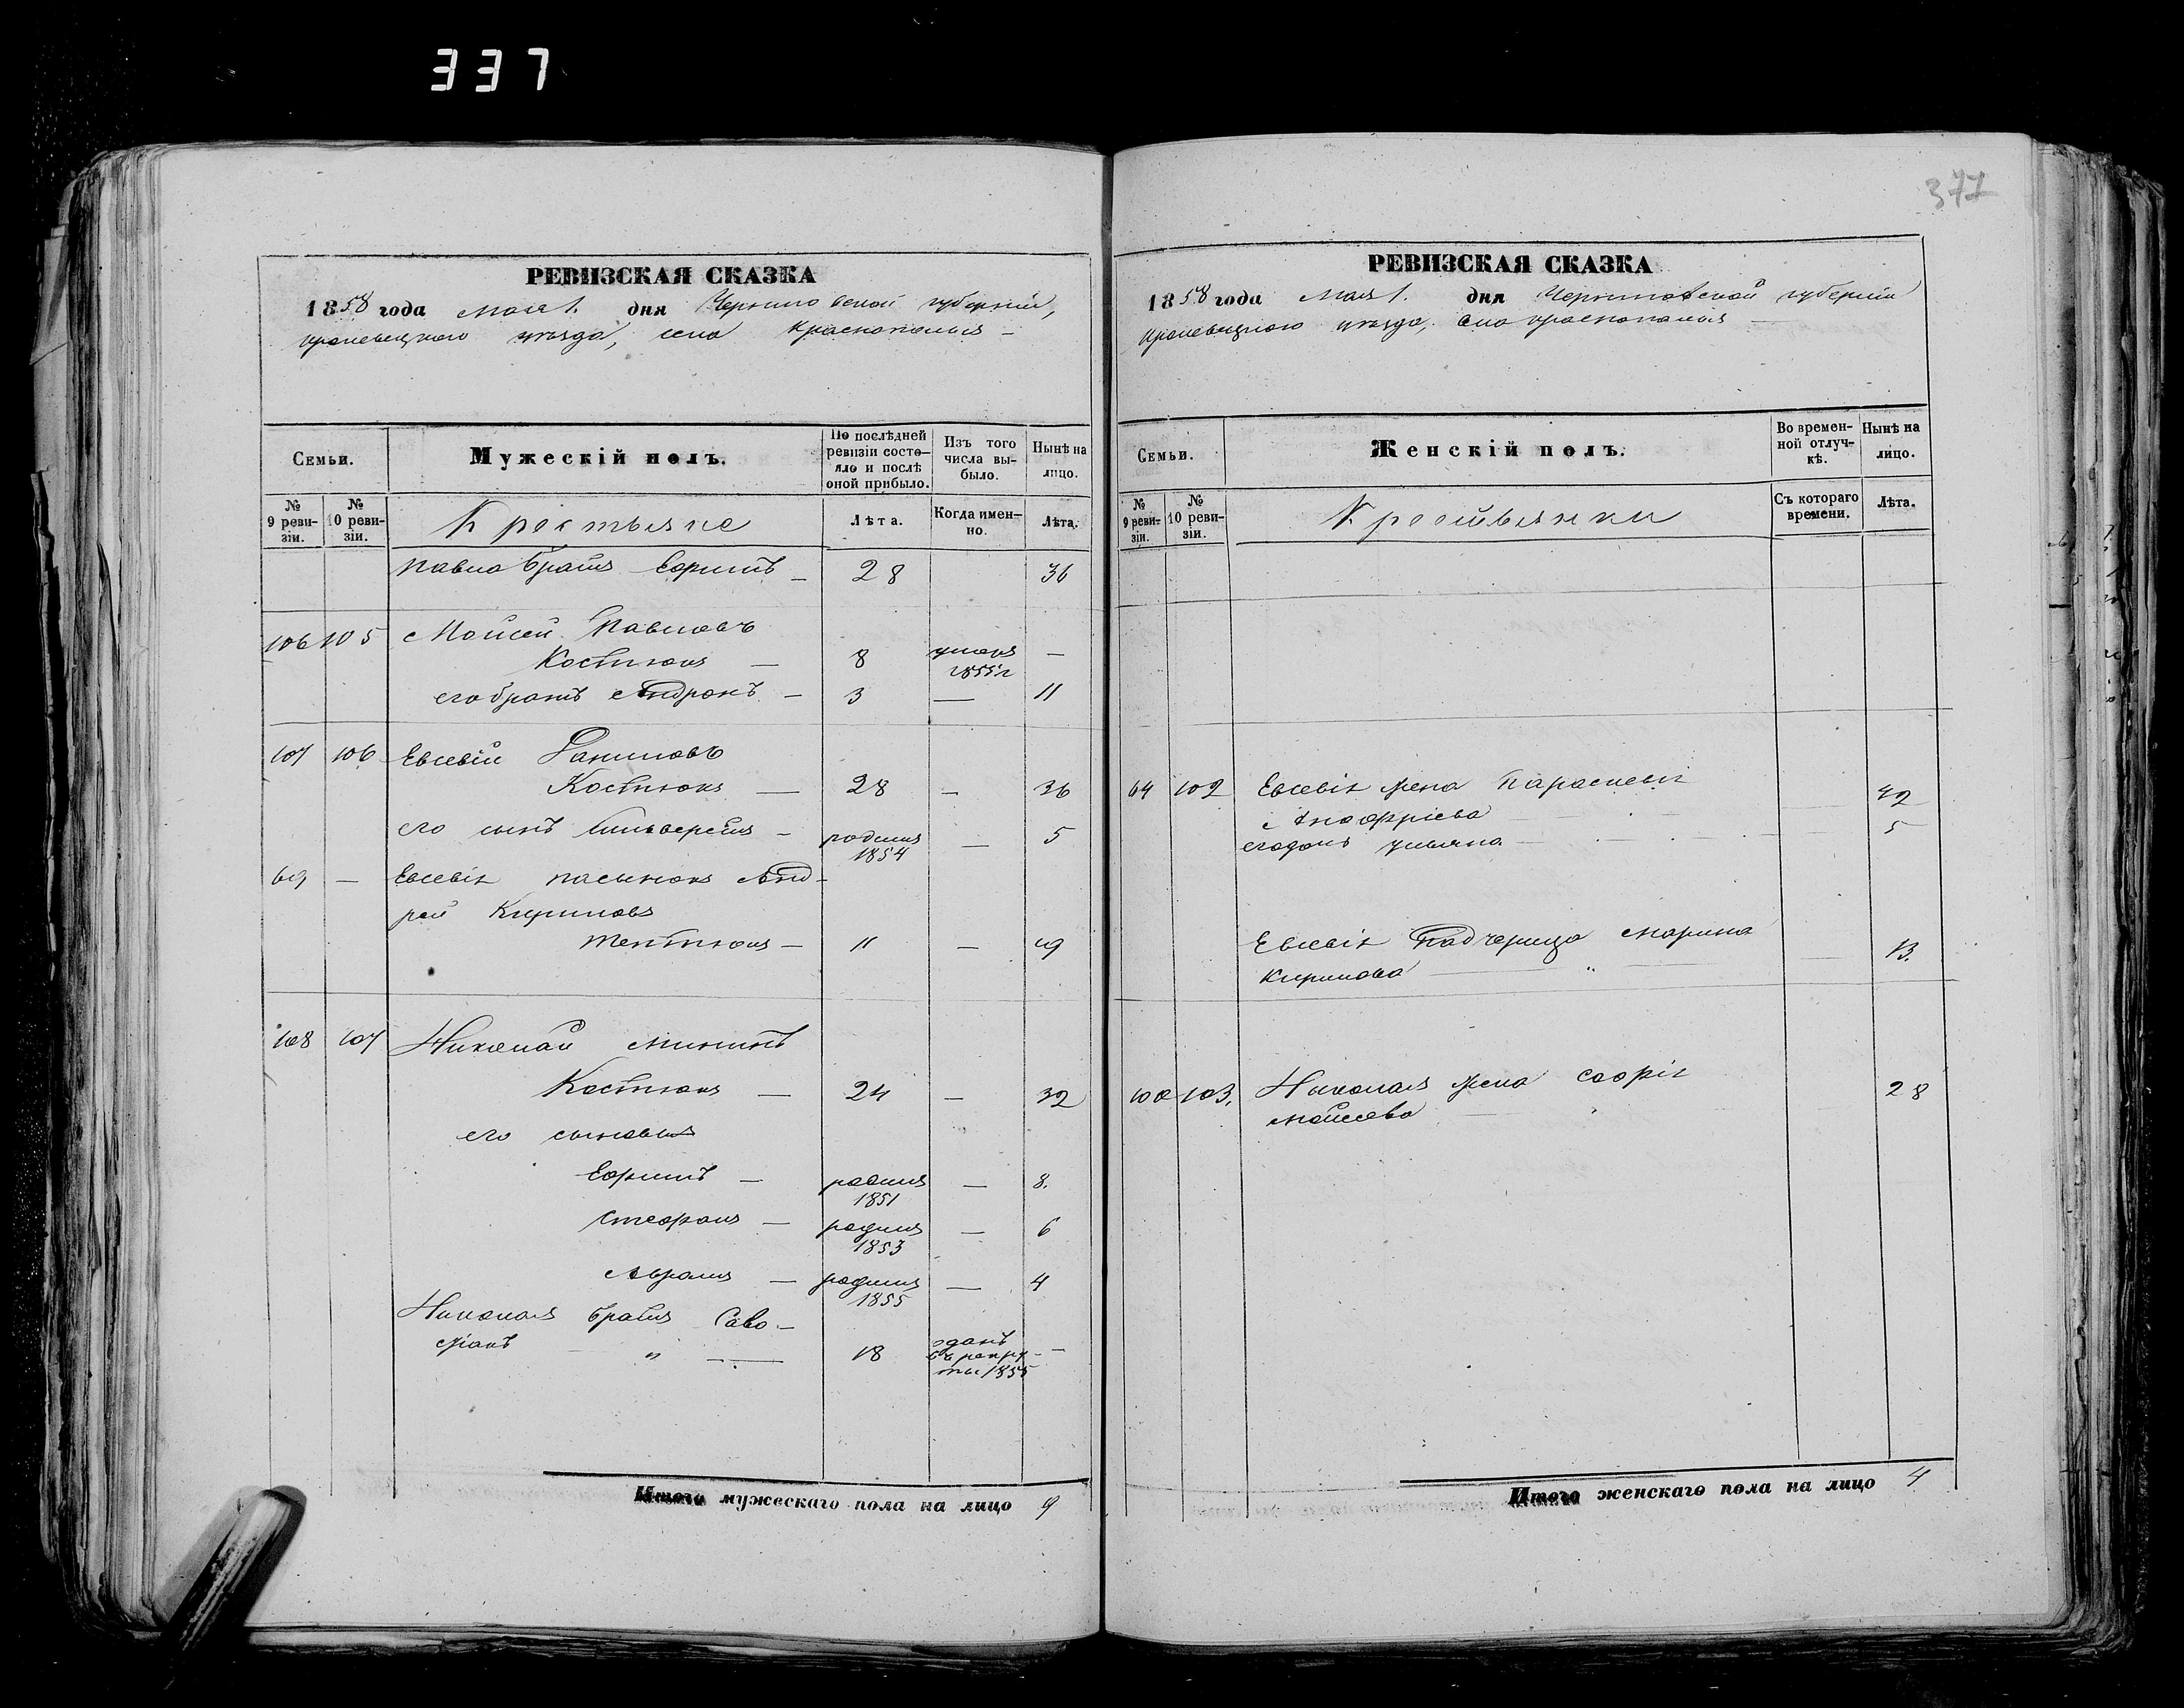 337
377
РЕВИЗСКАЯ СКАЗКА
1858 года Мая 1. дня Черниговской губерніи,
кролевецкаго уѣзда, села Краснополья —
Семьи.
Мужескій полъ.
По послѣдней ревизіи состояло и послѣ оной прибыло.
Изъ того числа выбыло.
Нынѣ на лицо.
№ 9 ревизіи.
№ 10 ревизіи.
Крестьяне
Лѣта.
Когда именно.
Лѣта.
Павла братъ Ефимъ — 28 36
106 105 Моисей Павловъ
Костюкъ — 8 умеръ 1855 г —
его братъ Андронъ — 3 — 11
107 106 Евсевій Даниловъ
Костюкъ — 28 — 36
его сынъ — родился 1854 — 5
69 — Евсевія пасынокъ Анд-
рей Кириловъ
— 11 — 19
108 107 Николай Мининъ
Костюкъ — 24 — 32
его сыновья
Ефимъ — родился 1851 — 8.
Стефанъ — родился 1853 — 6
Абрамъ — родился 1855 — 4
Николая братъ Сава-
" — 18 зданъ въ рекруты 1855 —
Итого мужескаго пола на лицо 9
РЕВИЗСКАЯ СКАЗКА
1858 года Мая 1. дня Черниговской губерніи
кролевецкаго уѣзда, села краснополья —
Семьи.
Женскій полъ.
Во временной отлучкѣ.
Нынѣ на лицо.
№ 9 ревизіи.
№ 10 ревизіи.
Крестьянки
Съ котораго времени.
Лѣта.
64 102 Евсевія жена Параскевія 42
Анофріева
его дочь Ульяна — 5
Евсевія Падчерица Марина 13.
Кирилова — "
100 103. Николая жена Софія 28
Моисеева —
Итого женскаго пола на лицо 4